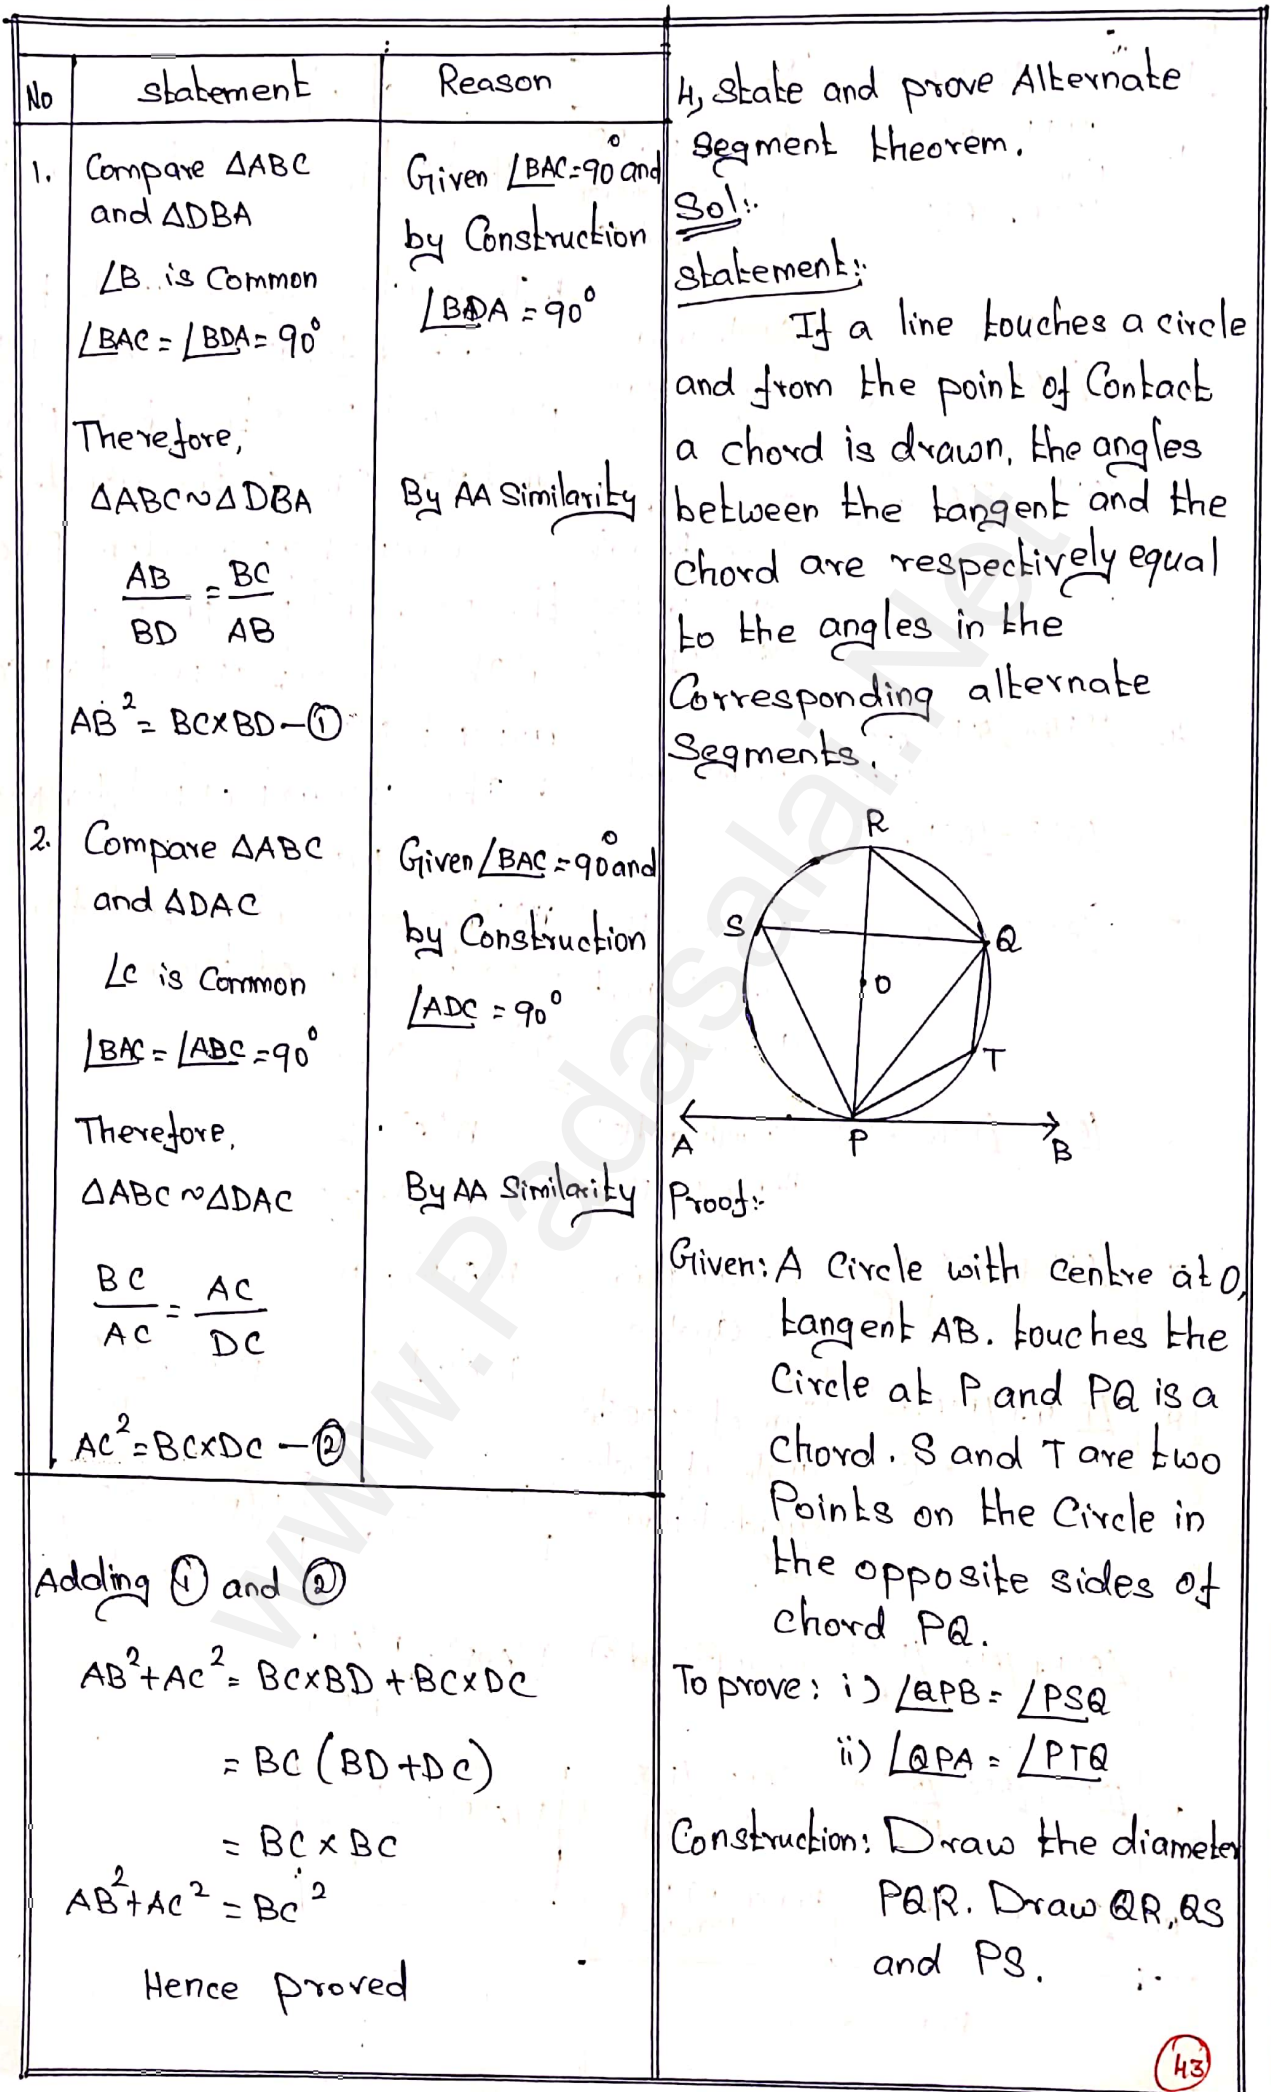 No statement Reason
1. Compare ΔABC
and ΔDBA
∠B is Common
∠BAC = ∠BDA = 90°
Given ∠BAC = 90° and
by Construction
∠BDA = 90°
Therefore,
ΔABC ~ ΔDBA
By AA Similarity
AB/BD = BC/AB
AB² = BC×BD — ①
2. Compare ΔABC
and ΔDAC
∠C is Common
∠BAC = ∠ABC = 90°
Given ∠BAC = 90° and
by Construction
∠ADC = 90°
Therefore,
ΔABC ~ ΔDAC
By AA Similarity
BC/AC = AC/DC
AC² = BC×DC — ②
Adding ① and ②
AB² + AC² = BC×BD + BC×DC
= BC (BD + DC)
= BC × BC
AB² + AC² = BC²
Hence proved
4, State and prove Alternate
Segment theorem.
Sol:.
Statement:
If a line touches a circle
and from the point of Contact
a chord is drawn, the angles
between the tangent and the
chord are respectively equal
to the angles in the
Corresponding alternate
Segments.
R
S
Q
O
T
A
P
B
Proof:-
Given: A Circle with Centre at O,
tangent AB. touches the
Circle at P and PQ is a
chord. S and T are two
Points on the Circle in
the opposite sides of
chord PQ.
To prove: i) ∠QPB = ∠PSQ
ii) ∠QPA = ∠PTQ
Construction: Draw the diameter
PQR. Draw QR, QS
and PS.
43
www.Padasalai.Net